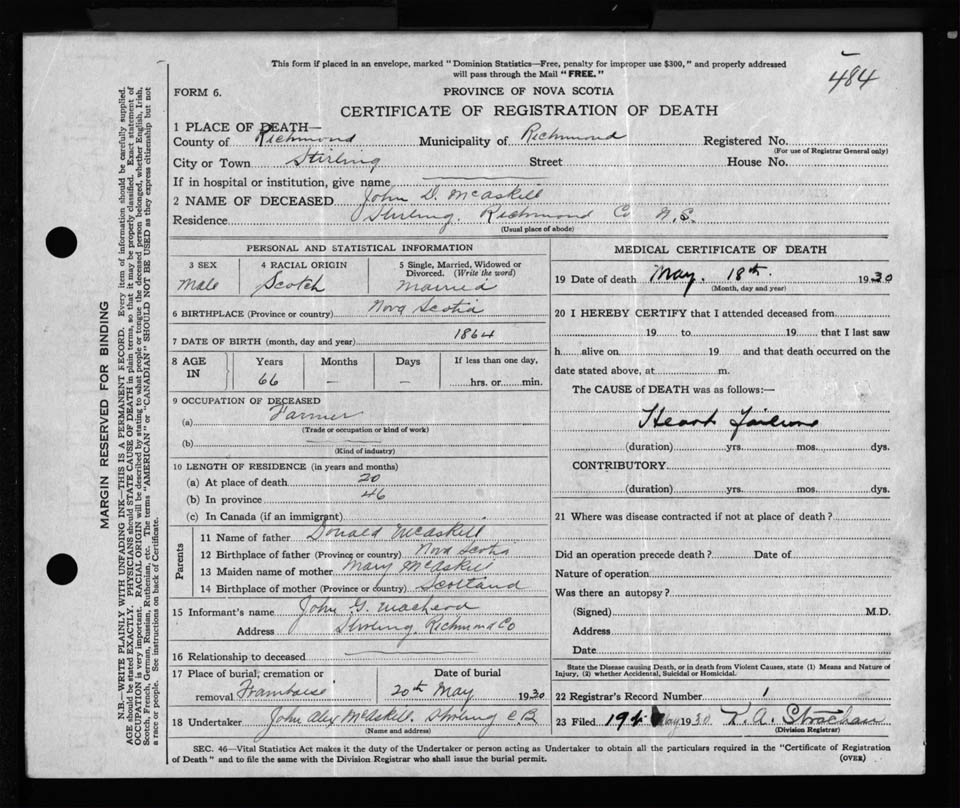 This form if placed in an envelope, marked "Dominion Statistics—Free, penalty for improper use $300," and properly addressed
will pass through the Mail "FREE."
484
FORM 6.
PROVINCE OF NOVA SCOTIA
CERTIFICATE OF REGISTRATION OF DEATH
1 PLACE OF DEATH—
County of Richmond Municipality of Richmond Registered No.
(For use of Registrar General only)
City or Town Stirling Street House No.
If in hospital or institution, give name
2 NAME OF DECEASED John D. McAskill
Residence Stirling. Richmond Co N.S.
(Usual place of abode)
PERSONAL AND STATISTICAL INFORMATION
3 SEX 4 RACIAL ORIGIN 5 Single, Married, Widowed or
Divorced. (Write the word)
Male Scotch Married
6 BIRTHPLACE (Province or country) Nova Scotia
7 DATE OF BIRTH (month, day and year) 1864
8 AGE IN Years Months Days If less than one day,
66 — — hrs. or min.
9 OCCUPATION OF DECEASED
(a) Farmer
(Trade or occupation or kind of work)
(b)
(Kind of industry)
10 LENGTH OF RESIDENCE (in years and months)
(a) At place of death 20
(b) In province 46
(c) In Canada (if an immigrant)
Parents
11 Name of father Donald McAskill
12 Birthplace of father (Province or country) Nova Scotia
13 Maiden name of mother Mary McAskill
14 Birthplace of mother (Province or country) Scotland
15 Informant's name John G.
Address Stirling, Richmond Co
16 Relationship to deceased
17 Place of burial, cremation or Date of burial
removal Framboise 20th May 1930
18 Undertaker John Alex McAskill. Stirling C.B.
(Name and address)
MEDICAL CERTIFICATE OF DEATH
19 Date of death May. 18th. 1930
(Month, day and year)
20 I HEREBY CERTIFY that I attended deceased from
19 to 19 that I last saw
h alive on 19 and that death occurred on the
date stated above, at m.
The CAUSE of DEATH was as follows:—
Heart Failure
(duration) yrs. mos. dys.
CONTRIBUTORY
(duration) yrs. mos. dys.
21 Where was disease contracted if not at place of death?
Did an operation precede death? Date of
Nature of operation
Was there an autopsy?
(Signed) M.D.
Address
Date
State the Disease causing Death, or in death from Violent Causes, state (1) Means and Nature of
Injury, (2) whether Accidental, Suicidal or Homicidal.
22 Registrar's Record Number 1
23 Filed May 1930 K. A. Strachan
(Division Registrar)
SEC. 46—Vital Statistics Act makes it the duty of the Undertaker or person acting as Undertaker to obtain all the particulars required in the "Certificate of Registration
of Death" and to file the same with the Division Registrar who shall issue the burial permit. (OVER)
MARGIN RESERVED FOR BINDING
N.B.—WRITE PLAINLY WITH UNFADING INK—THIS IS A PERMANENT RECORD. Every item of information should be carefully supplied.
AGE should be stated EXACTLY. PHYSICIANS should STATE CAUSE OF DEATH in plain terms, so that it may be properly classified. Exact statement of
OCCUPATION is very important. RACIAL ORIGIN will be described by stating to what people or tongue the deceased person belonged, whether English, Irish,
Scotch, French, German, Russian, Ruthenian, etc. The terms "AMERICAN" or "CANADIAN" SHOULD NOT BE USED as they express citizenship but not
a race or people. See instructions on back of Certificate.